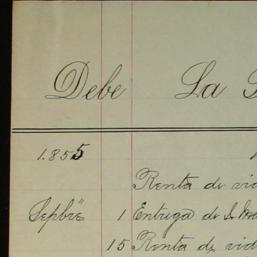 Debe La
1.855
Renta de
Sepbre 1 Entrega de
15 Renta de